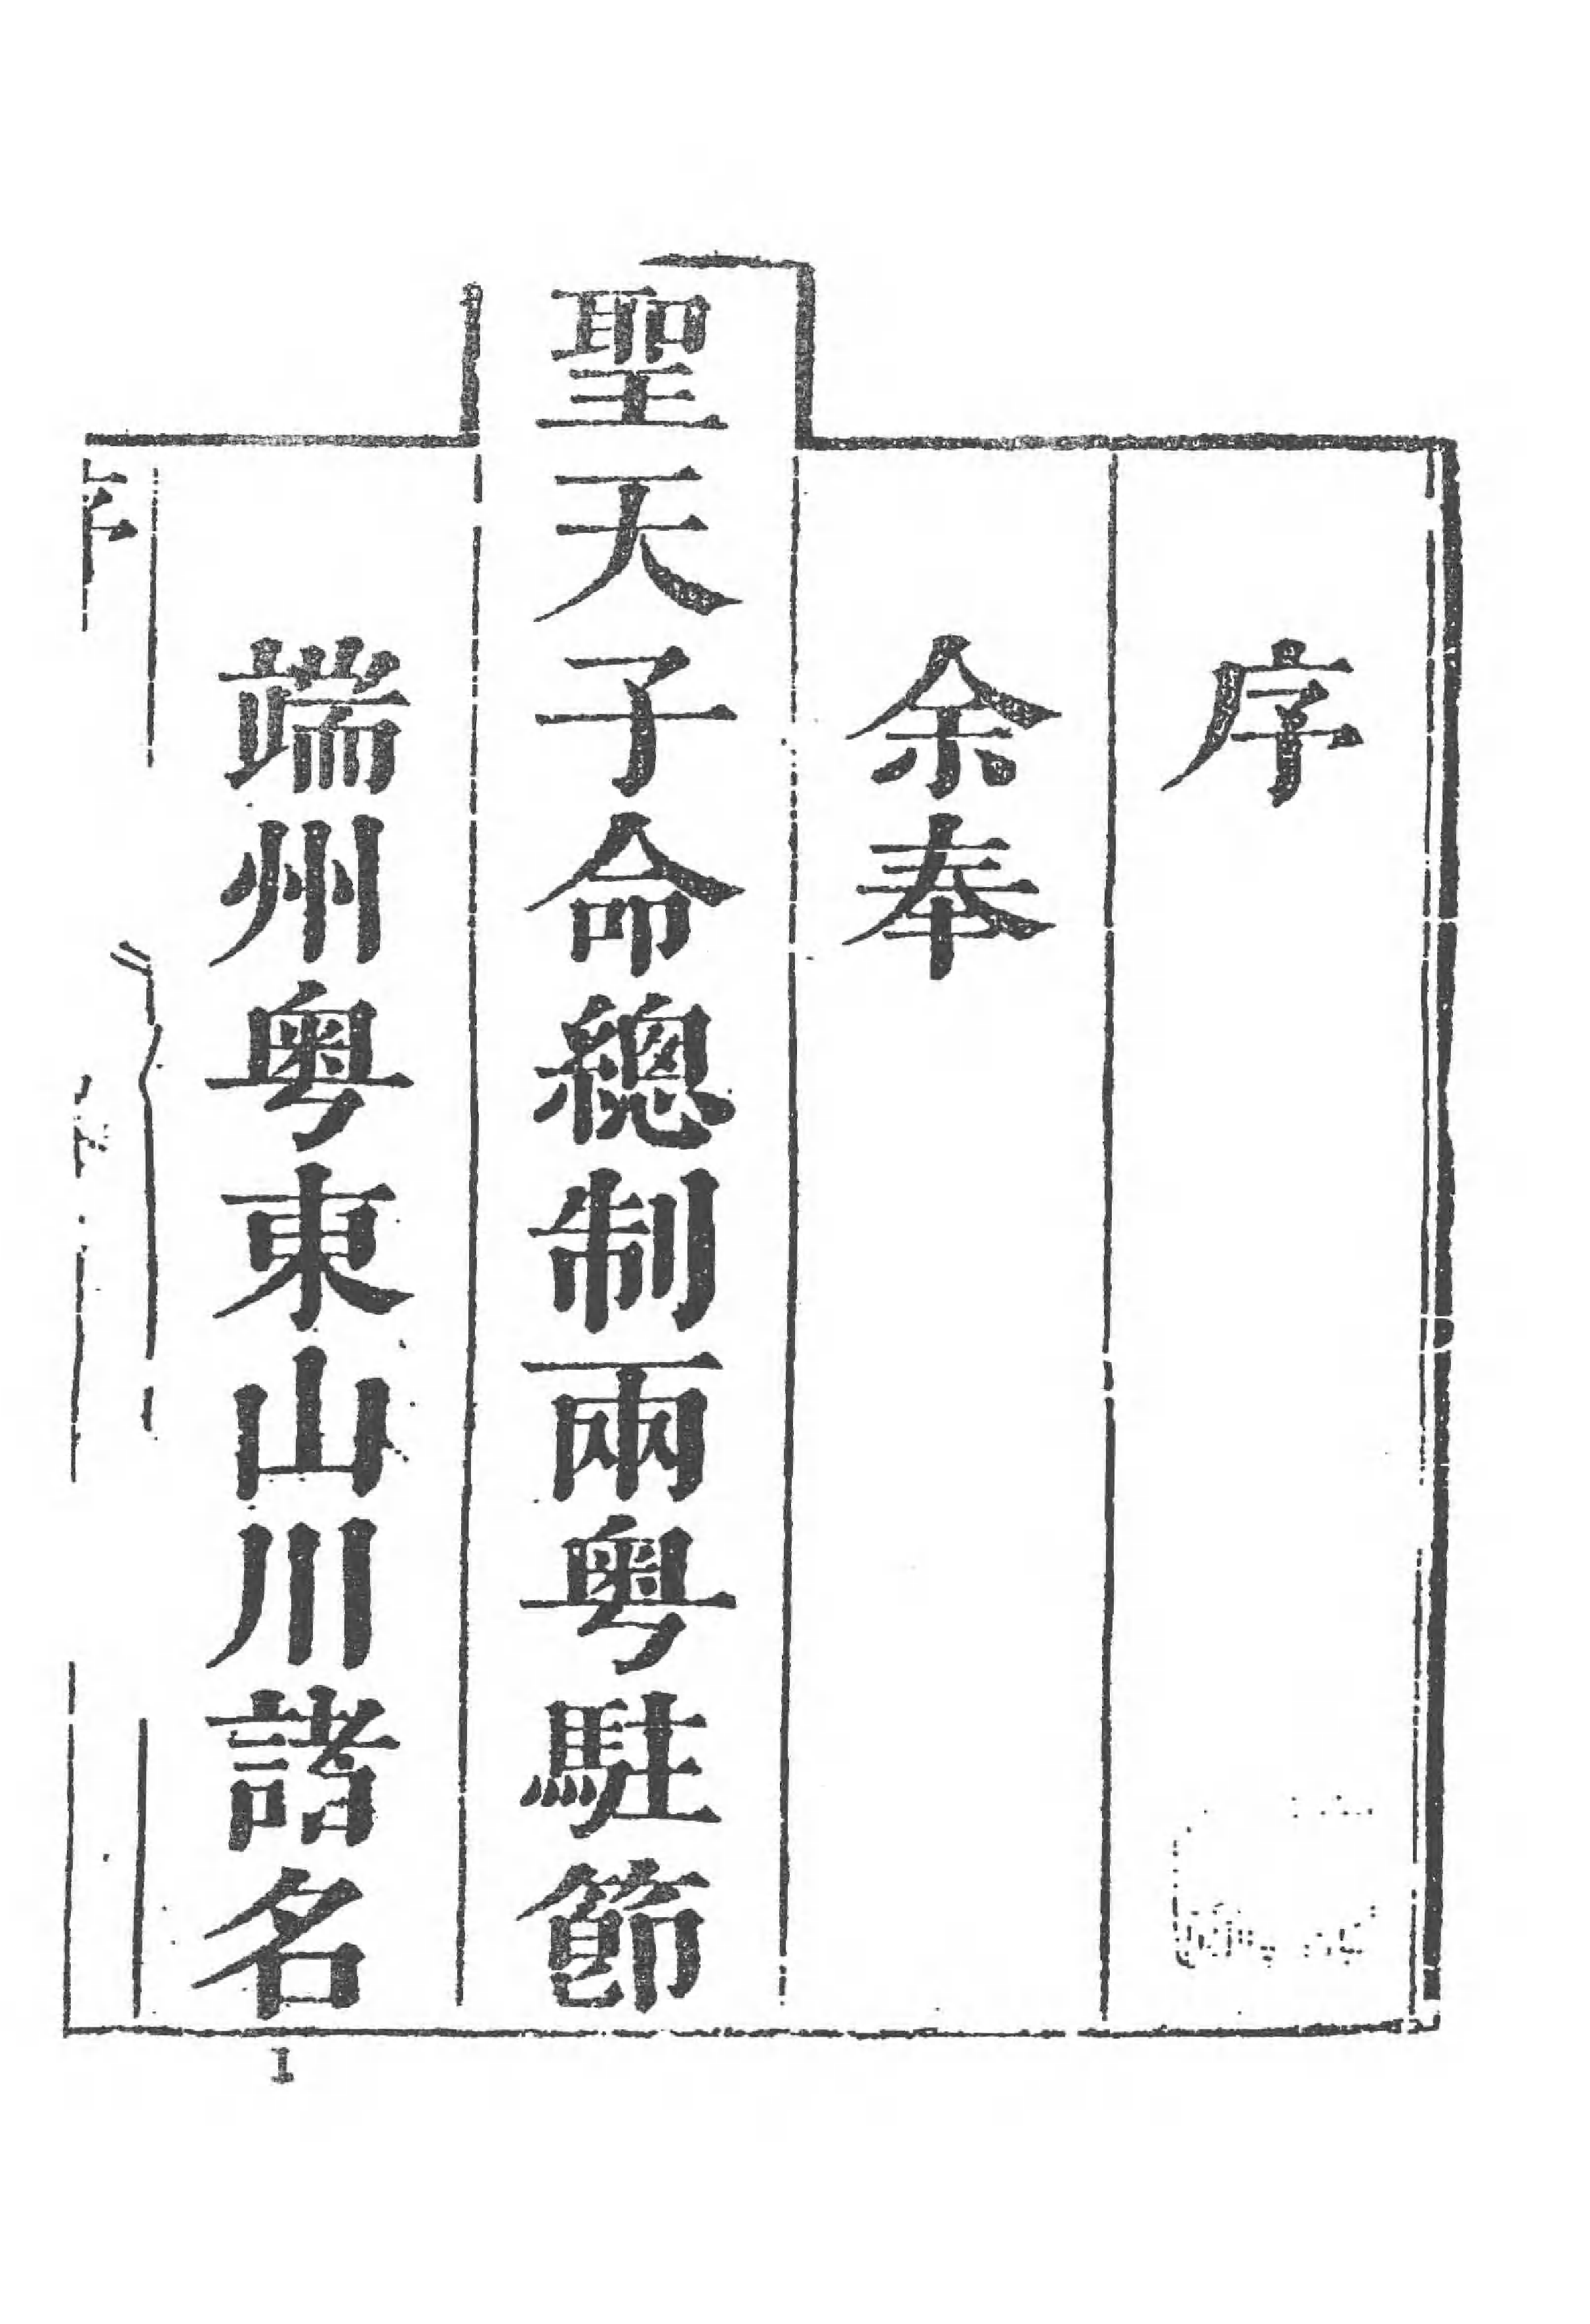 序
余奉
聖天子命總制兩粤駐節
端州粤東山川諸名
序
1